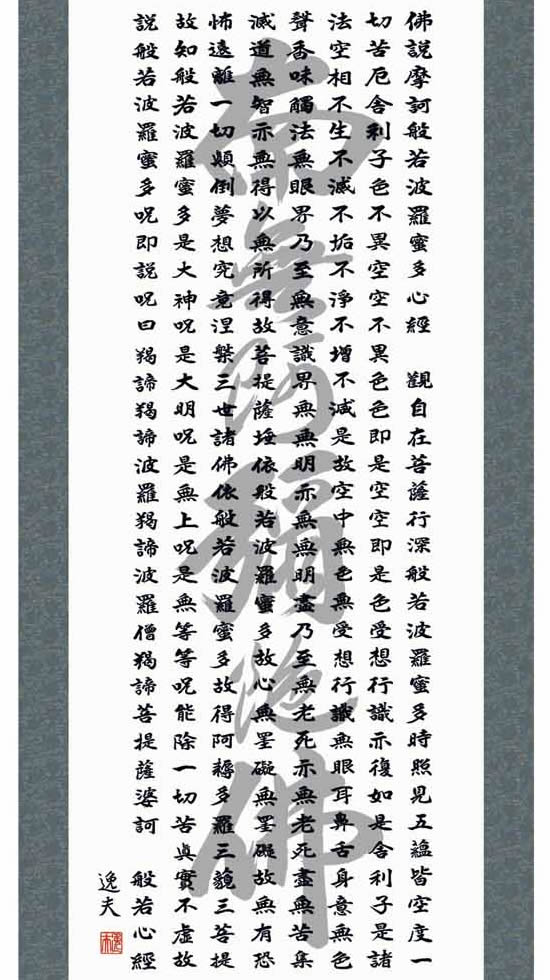 佛說摩訶般若波羅蜜多心經 觀自在菩薩行深般若波羅蜜多時照見五蘊皆空度一
切苦厄舍利子色不異空空不異色色即是空空即是色受想行識亦復如是舍利子是諸
法空相不生不滅不垢不淨不增不減是故空中無色無受想行識無眼耳鼻舌身意無色
聲香味觸法無眼界乃至無意識界無無明亦無無明盡乃至無老死亦無老死盡無苦集
滅道無智亦無得以無所得故菩提薩埵依般若波羅蜜多故心無罣礙無罣礙故無有恐
怖遠離一切顛倒夢想究竟涅槃三世諸佛依般若波羅蜜多故得阿耨多羅三藐三菩提
故知般若波羅蜜多是大神呪是大明呪是無上呪是無等等呪能除一切苦真實不虛故
説般若波羅蜜多呪即説呪曰羯諦羯諦波羅羯諦波羅僧羯諦菩提薩婆訶 般若心經
逸夫
南無阿彌陀佛